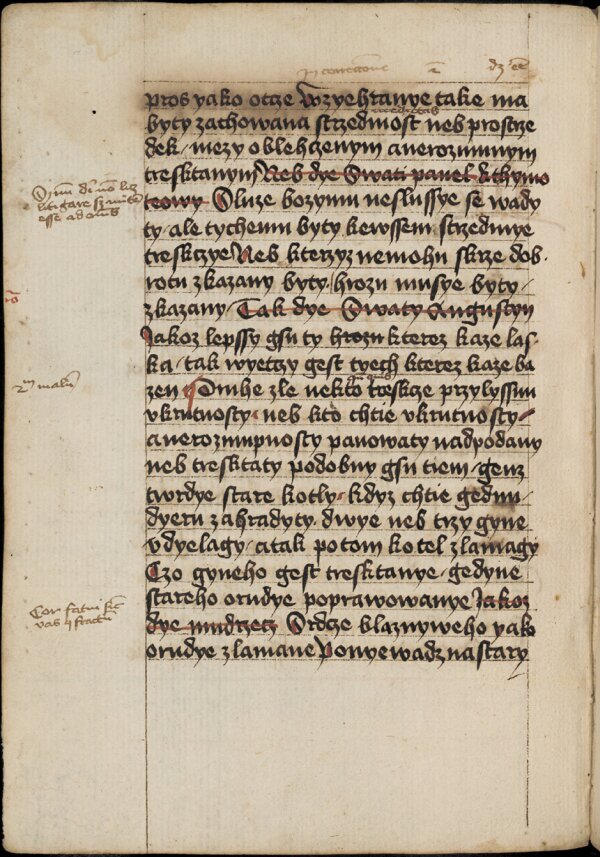 pros yako otcze Wzyehranye take ma
byty zachowana strzedmost neb prostrze
dek / mezy oblehczenym a nerozumnym
tresktanym Neb dye Swati pavel k thymo
teowy Sluze bozymu neslussye se wady
ty / ale tychemu byty k ewssem / strzedmye
treskczye Neb kterzyz nemohu skrze dob
rotu zkazany byty / hrozu musye byty /
zkazany / Tak dye Swaty Augustyn
Jakoz lepssy gsu ty hrozu kterez kaze las
ka / tak wyetczy gest tyech kterez kaze ba
zen Druhe zle nekto treskcze przylyssnu
vkrutnosty / neb kto chtie vkrutnosty /
a nerozumpnosty panowaty nad podany
neb tresktaty podobny gsu tiem / genz
twrdye stare kotly / kdyz chtie gednu /
dyeru zahradyty / dwye neb trzy gyne
vdyelagy / a tak potom kotel zlamagy
Czo gyneho gest tresktanye / gedyne
stareho orudye poprawowanye Jakoz
dye mudrzecz Srdcze blaznyweho yako
orudye zlamane Ponyewadz na stary